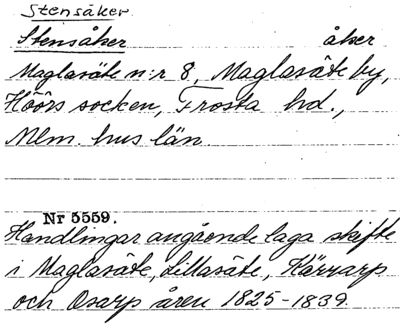 Stensåker
Stensåker åker
Maglasäte n:r 8, Maglasäte by,
Höörs socken, Frosta hd.,
Mlm. hus län
Nr 5559.
Handlingar angående laga skifte
i Maglasäte, Lillasäte, Kärrarp
och Osarp åren 1825-1839.